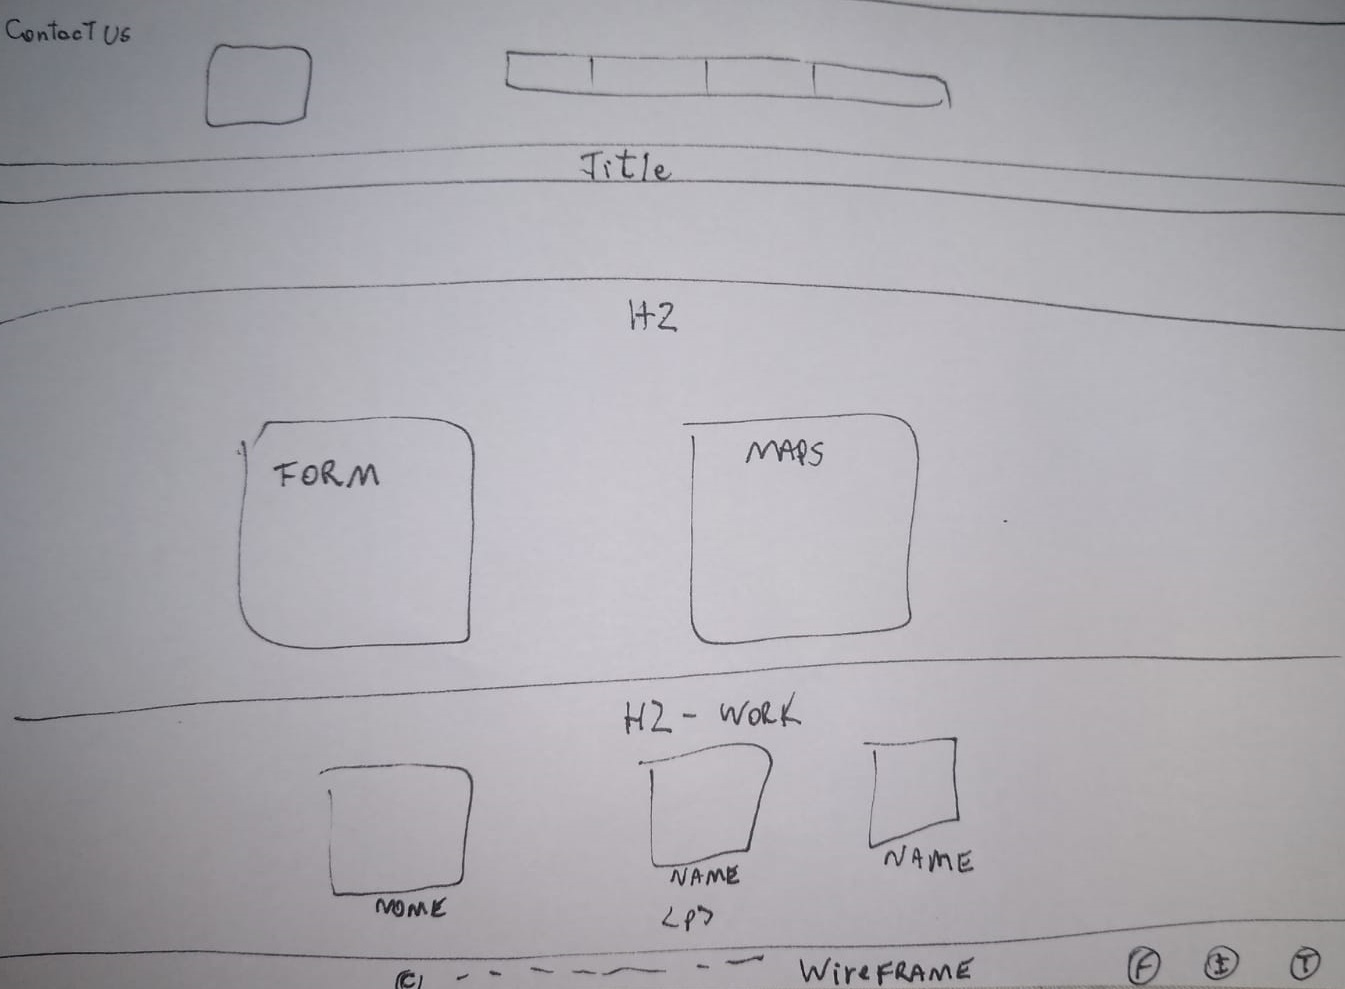 Contact Us
Title
H2
FORM
MAPS
H2 - WORK
NOME
NAME
NAME
<P>
(C) WireFRAME F I T